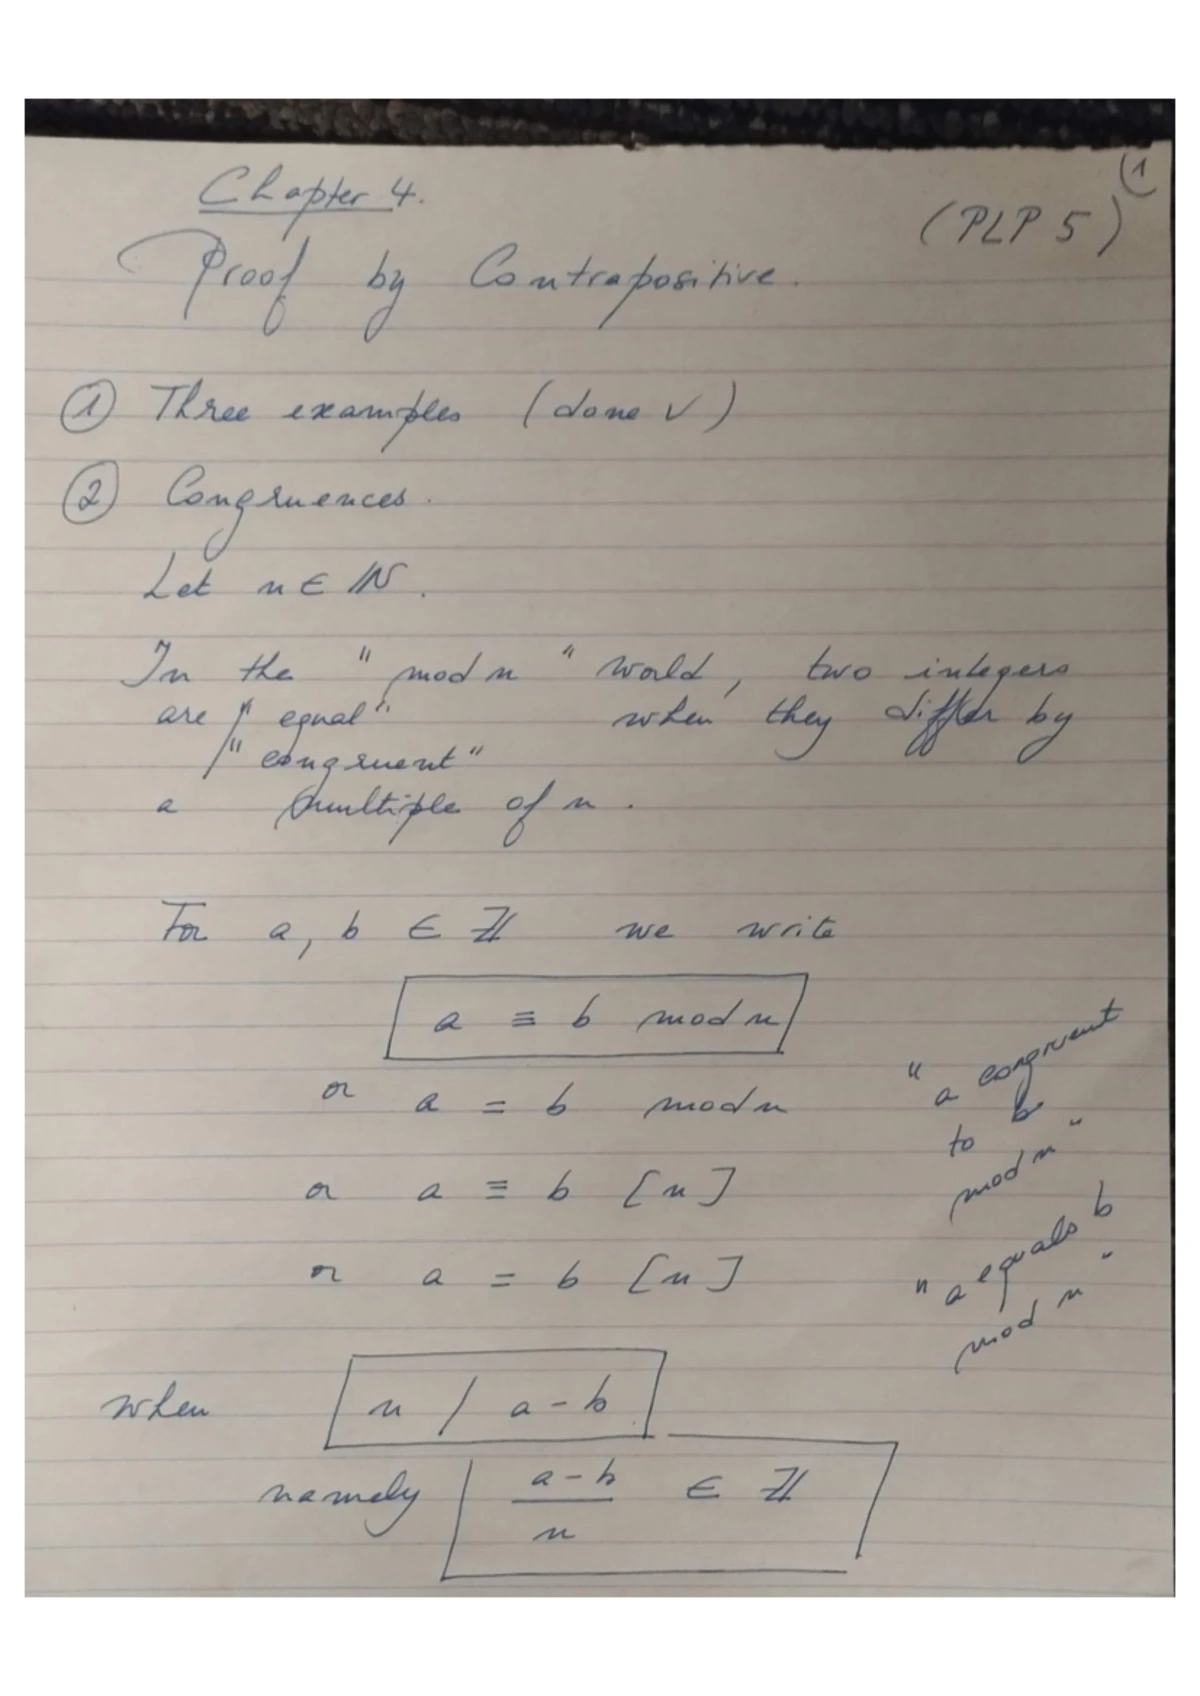 (1
Chapter 4.
(PLP 5)
Proof by Contrapositive.
① Three examples (done ✓)
② Congruences.
Let n ∈ ℕ.
In the "mod n" world, two integers
are "equal" when they differ by
"congruent"
a multiple of n.
For a, b ∈ ℤ we write
a ≡ b mod n
or a = b mod n
or a ≡ b [n]
or a = b [n]
"a congruent
to b
mod n"
"a equals b
mod n"
when n | a-b
namely a-b ∈ ℤ
n